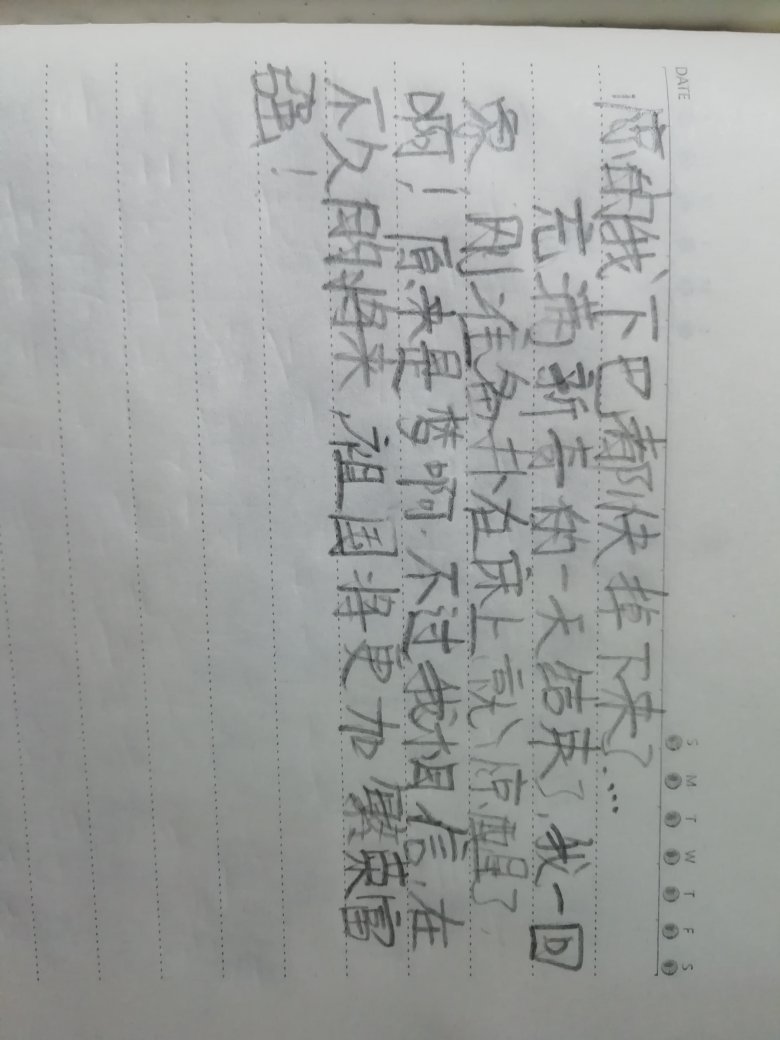 DATE
S M T W T F S
惊的我下巴都快掉下来了……
充满新奇的一天结束了，我一回
家，刚准备扑在床上就惊醒了，
啊！原来是梦啊，不过我相信，在
不久的将来，祖国将更加繁荣富
强！